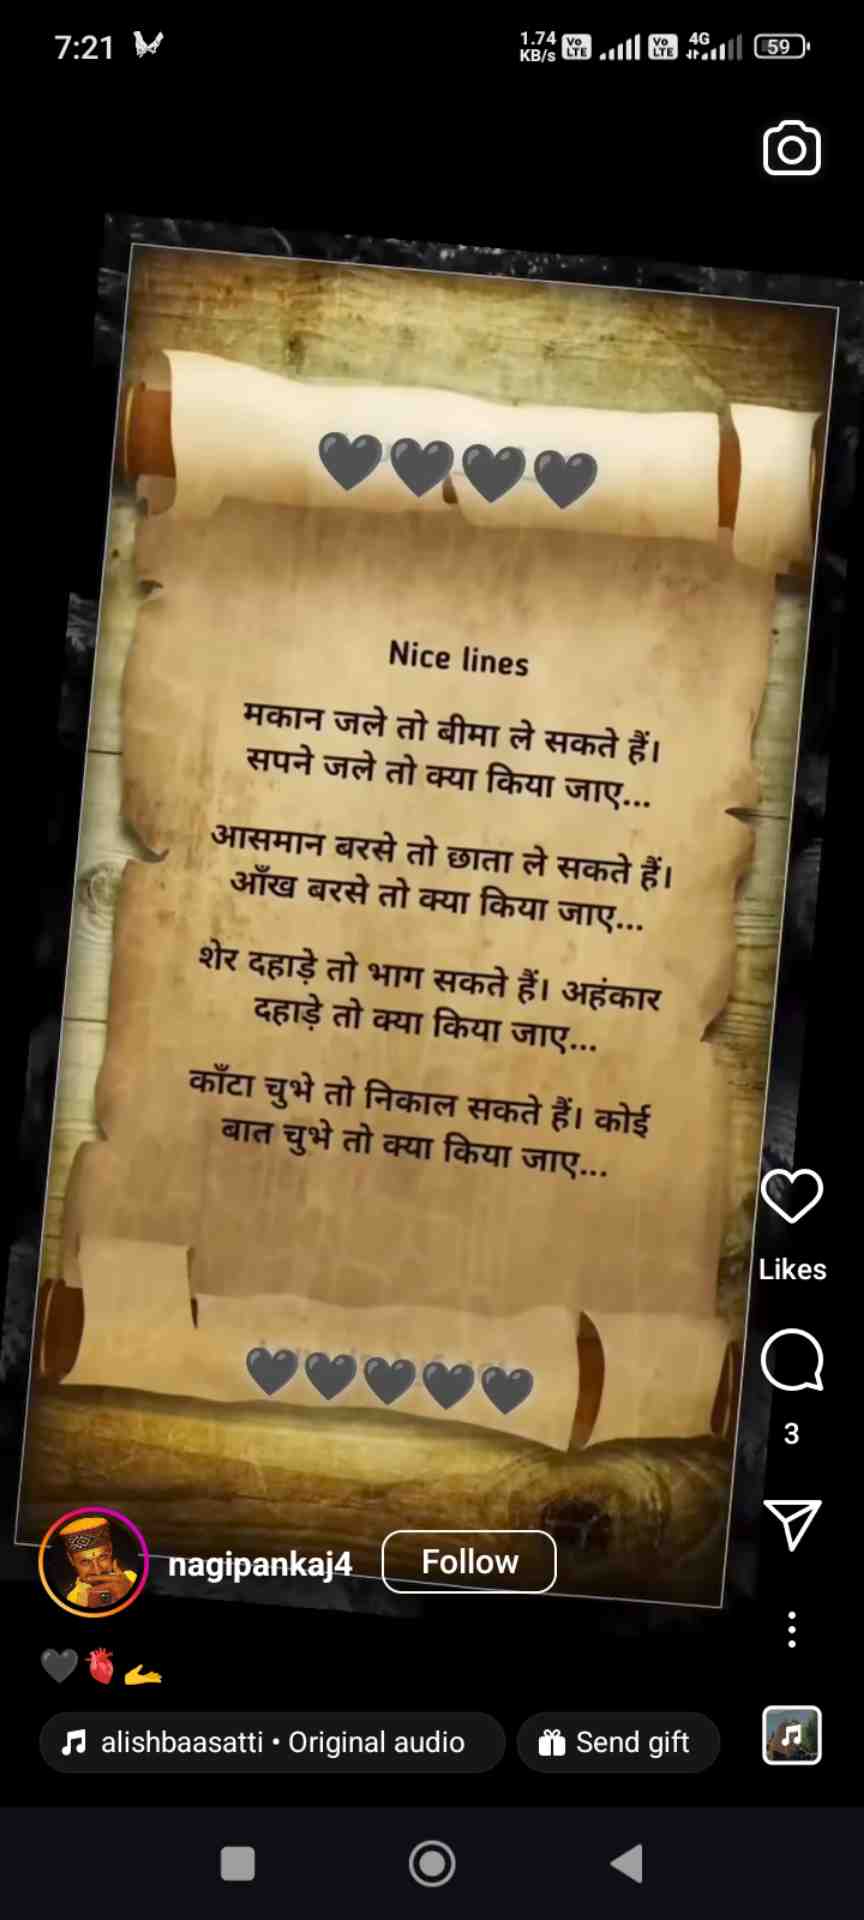 7:21
1.74
KB/s
Vo
LTE
Vo
LTE
4G
59
Nice lines
मकान जले तो बीमा ले सकते हैं।
सपने जले तो क्या किया जाए...
आसमान बरसे तो छाता ले सकते हैं।
आँख बरसे तो क्या किया जाए...
शेर दहाड़े तो भाग सकते हैं। अहंकार
दहाड़े तो क्या किया जाए...
काँटा चुभे तो निकाल सकते हैं। कोई
बात चुभे तो क्या किया जाए...
Likes
3
nagipankaj4
Follow
alishbaasatti • Original audio
Send gift